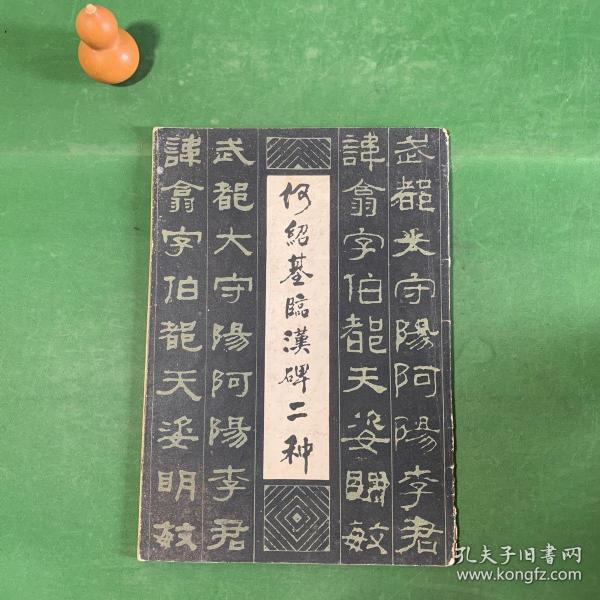 武都太守陽阿陽李君
諱翕字伯都天姿明敏
何紹基臨漢碑二种
武都大守陽阿陽李君
諱翕字伯都天姿明敏
孔夫子旧書网
www.kongfz.com